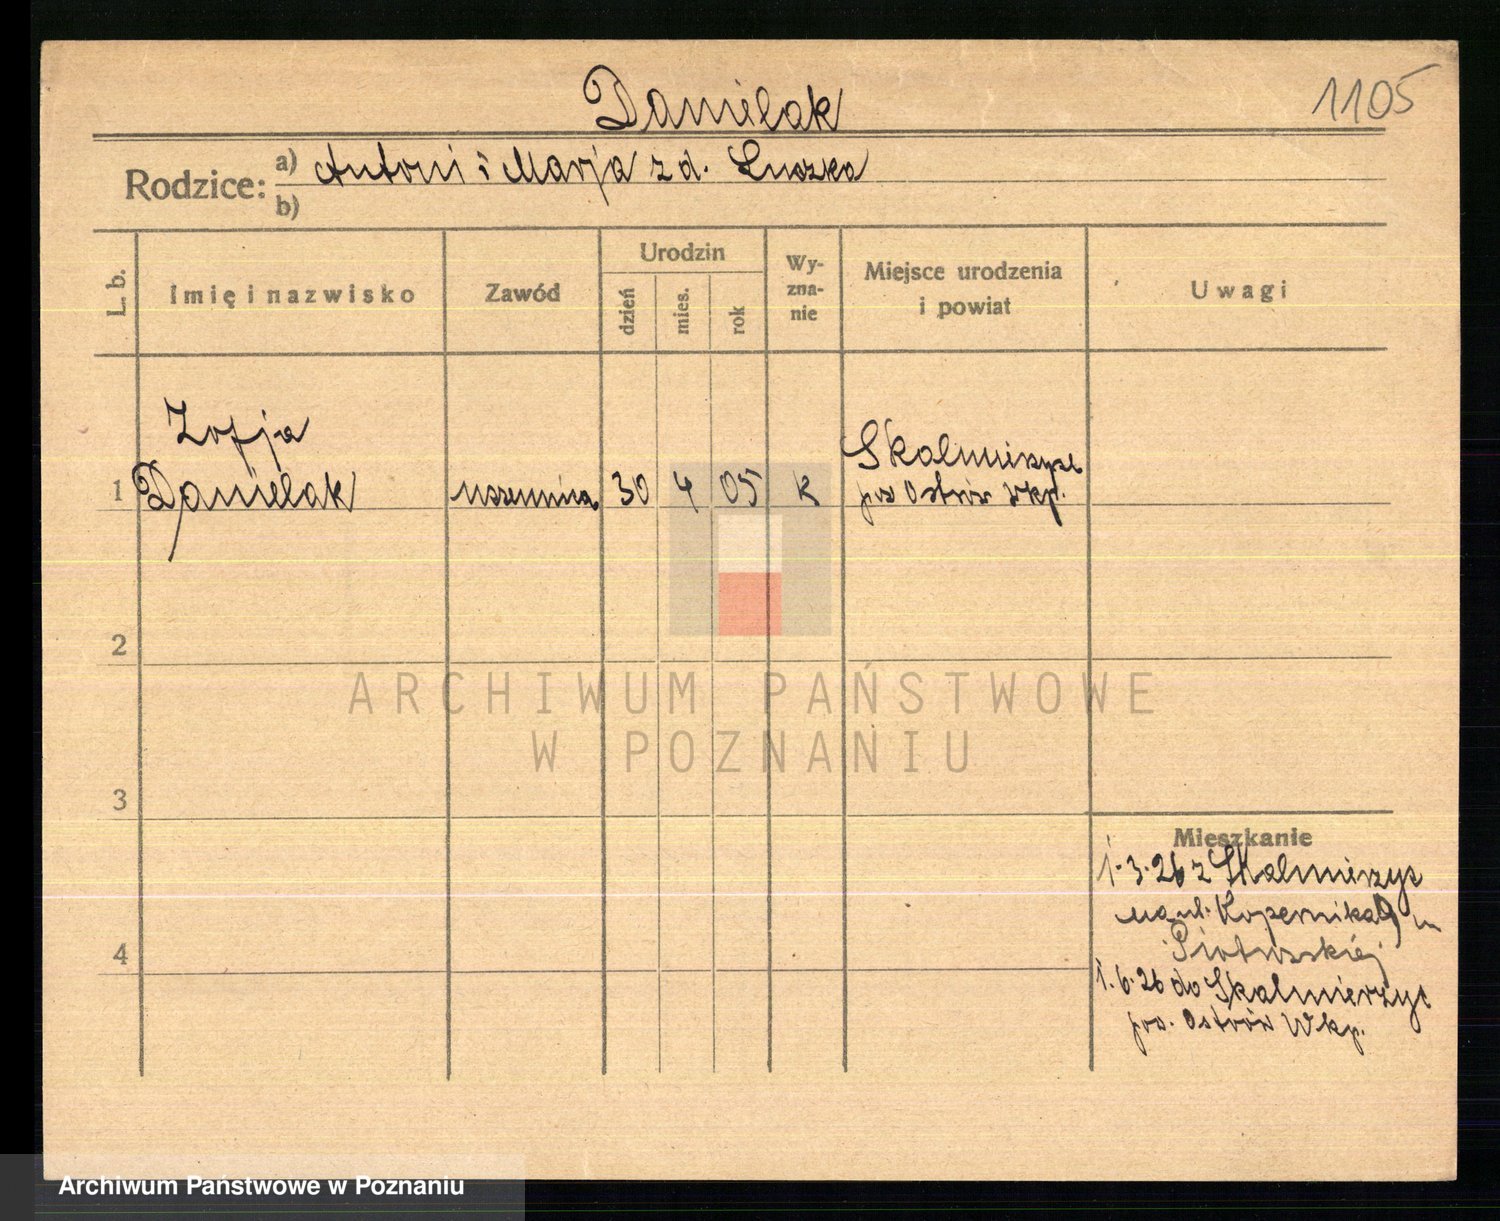 1105
Danielak
Rodzice: a) Antoni i Marja z d. Luszka
b)
L. b.
Imię i nazwisko
Zawód
Urodzin
dzień
mies.
rok
Wy-
zna-
nie
Miejsce urodzenia
i powiat
Uwagi
Zofja
1 Danielak uczennica 30 4 05 k
Skalmierzyce
pow Ostrów Wkp.
2
3
4
Mieszkanie
1.3.26 z Skalmierzyc
na ul. Kopernika 9
1.6.26 do Skalmierzyc
pow. Ostrów Wkp.
ARCHIWUM PAŃSTWOWE
W POZNANIU
Archiwum Państwowe w Poznaniu